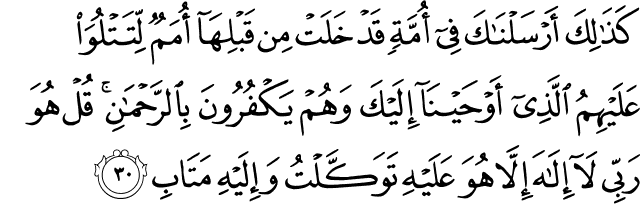 كَذَٰلِكَ أَرْسَلْنَـٰكَ فِىٓ أُمَّةٍ قَدْ خَلَتْ مِن قَبْلِهَآ أُمَمٌ لِّتَتْلُوَا۟
عَلَيْهِمُ ٱلَّذِىٓ أَوْحَيْنَآ إِلَيْكَ وَهُمْ يَكْفُرُونَ بِٱلرَّحْمَـٰنِ ۚ قُلْ هُوَ
رَبِّى لَآ إِلَـٰهَ إِلَّا هُوَ عَلَيْهِ تَوَكَّلْتُ وَإِلَيْهِ مَتَابِ ٣٠